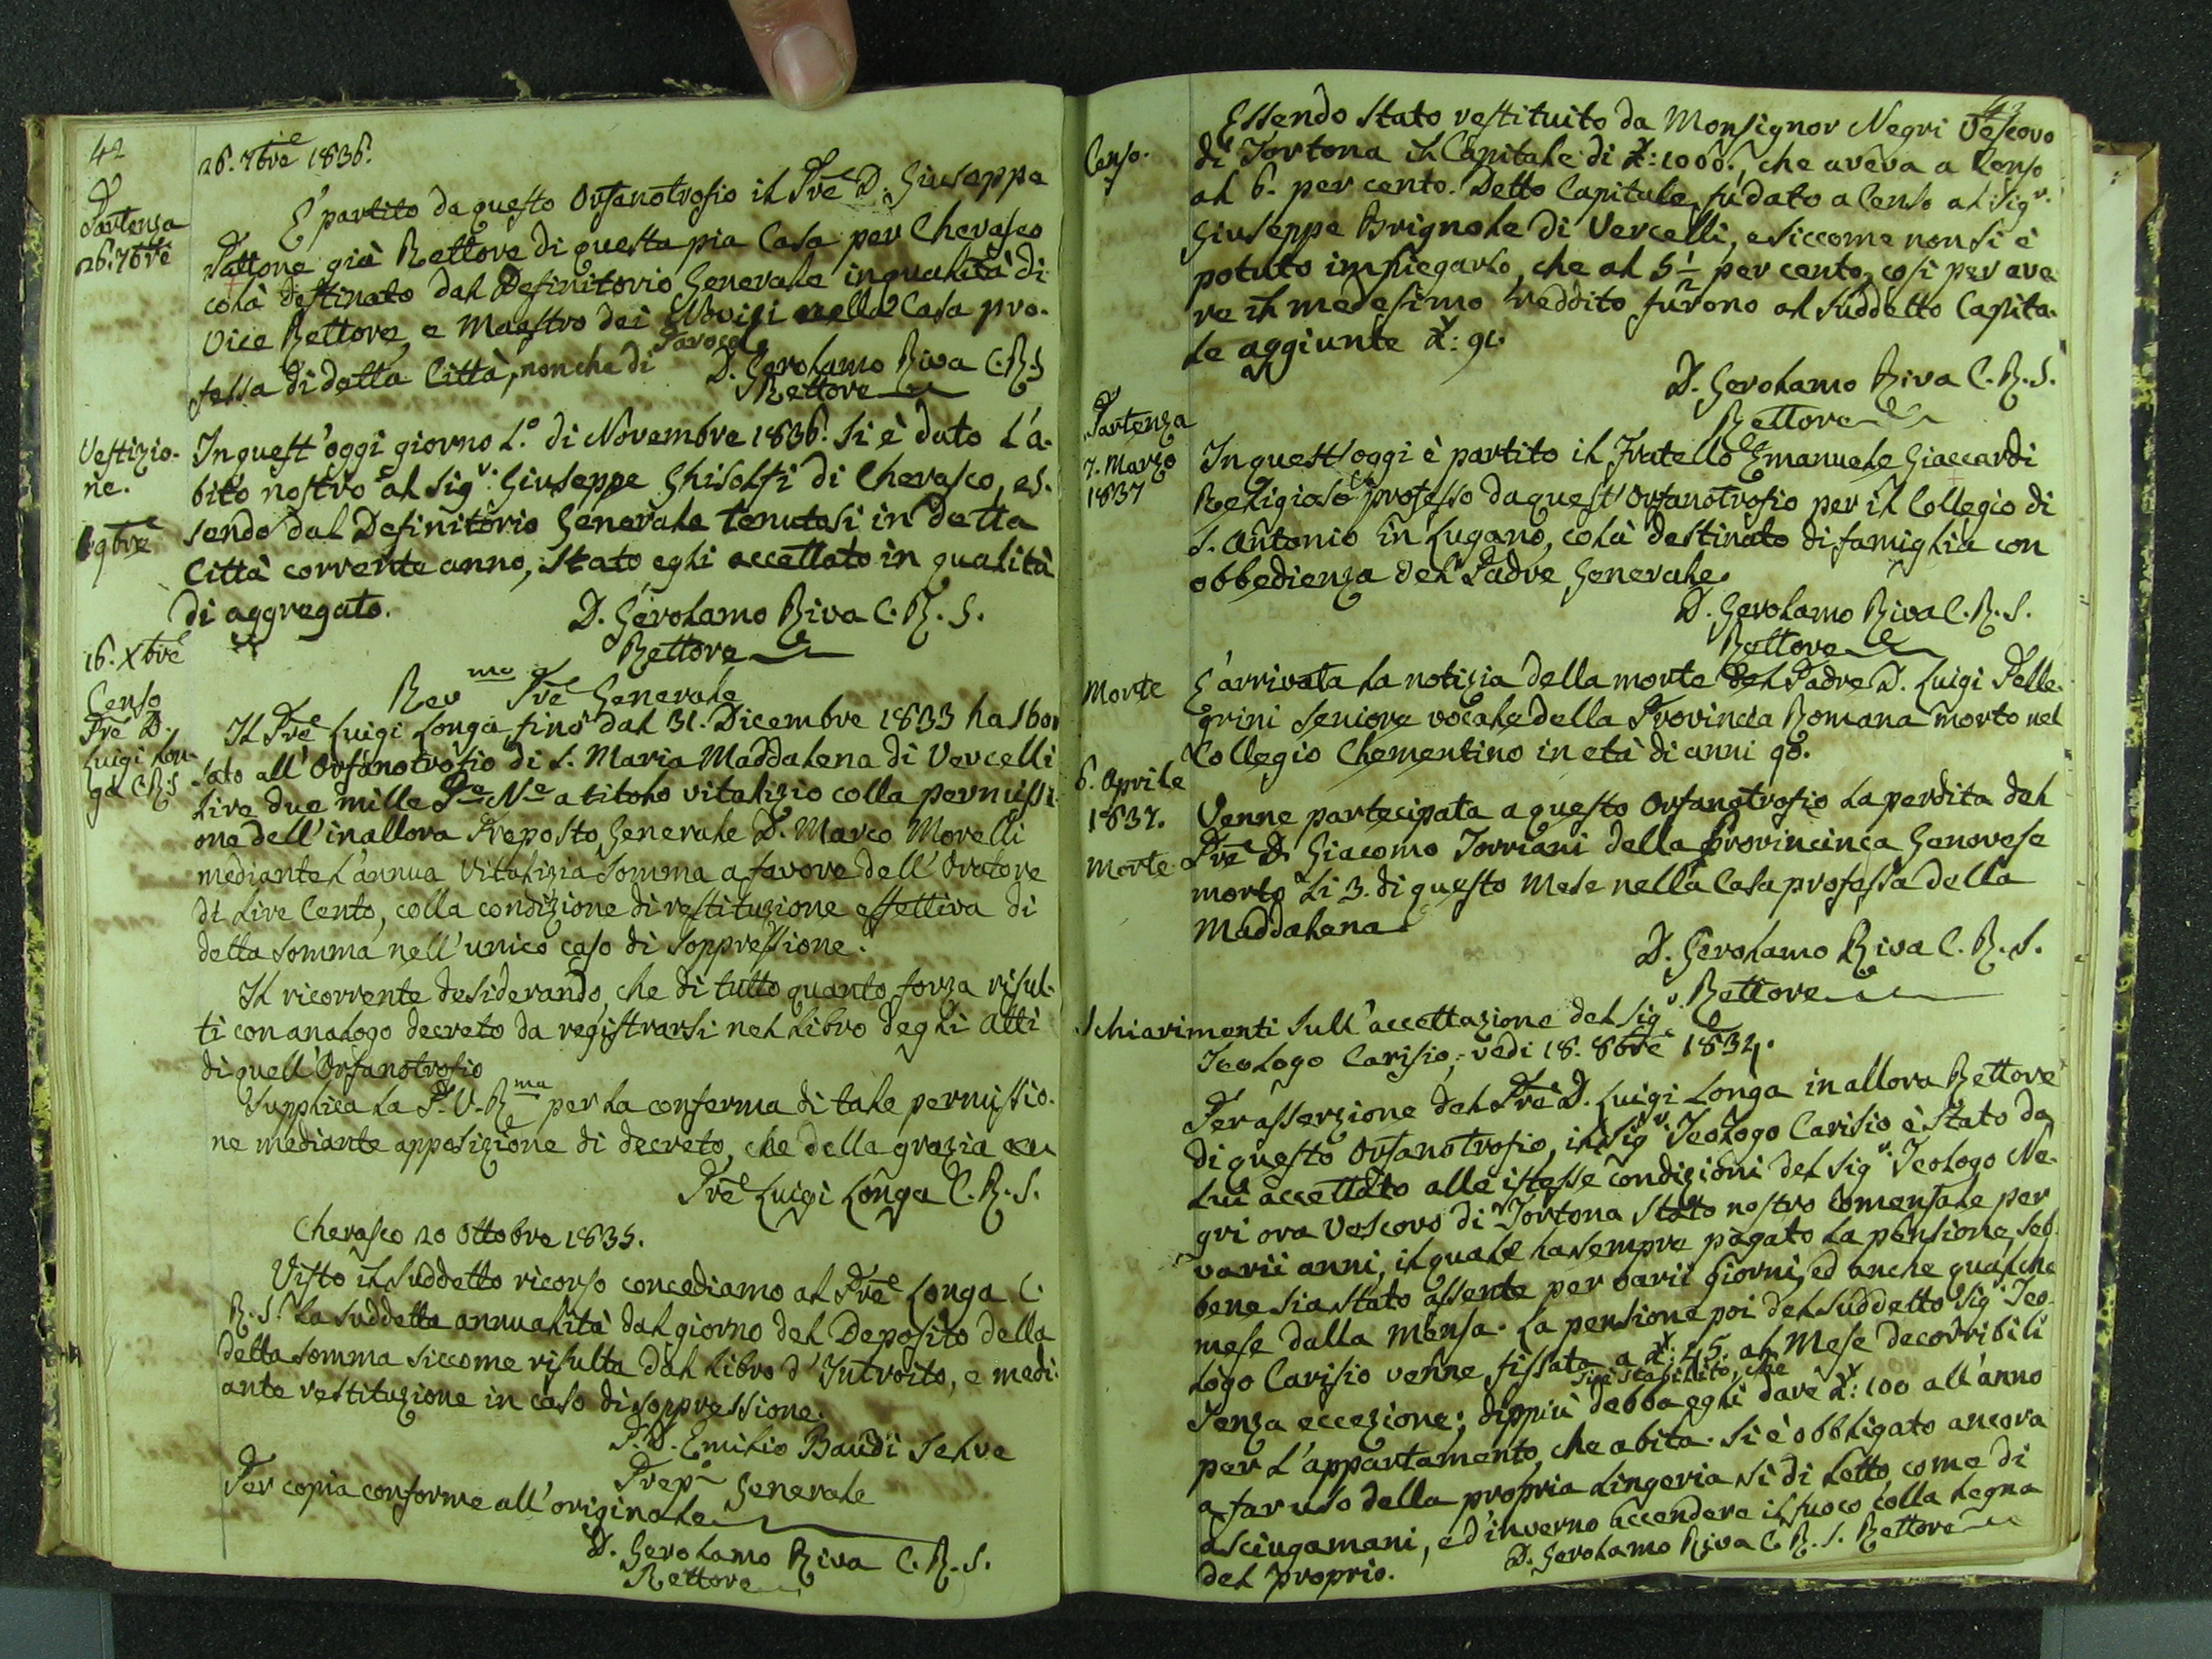 42
26. 7bre 1836.
Partenza
26. 7bre
E' partito da questo Orfanotrofio il Pre D. Giuseppe
Pattone già Rettore di questa pia Casa per Cherasco
colà destinato dal Definitorio Generale in qualità di
Vice Rettore, e Maestro dei Novizi nella Casa pro-
fessa di detta Città, nonche di Paroco.
D. Gerolamo Riva C.R.S
Rettore
Vestizio-
ne.
1 9bre
In quest'oggi giorno 1.° di Novembre 1836. si è dato l'a-
bito nostro al Sigr. Giuseppe Ghisolfi di Cherasco, es-
sendo dal Definitorio Generale tenutosi in detta
Città corrente anno, stato egli accettato in qualità
di aggregato.
D. Gerolamo Riva C. R. S.
Rettore
16. Xbre
Censo
Pre D.
Luigi Lon-
ga C.R.S
Revmo Pre Generale
Il Pre Luigi Longa fino dal 31. Dicembre 1833 ha sbor
sato all'Orfanotrofio di S. Maria Maddalena di Vercelli
lire due mille Pe Ne a titolo vitalizio colla permissi-
one dell'inallora Preposto Generale D. Marco Morelli
mediante l'annua Vitalizia somma a favore dell'Oratore
di Lire Cento, colla condizione di restituzione effettiva di
detta somma nell'unico caso di soppressione.
Il ricorrente desiderando, che di tutto quanto forza risul-
ti con analogo decreto da registrarsi nel Libro degli Atti
di quell'Orfanotrofio
Supplica la P. V. Rma per la conferma di tale permissio-
ne mediante apposizione di decreto, che della grazia
Pre Luigi Longa C. R. S.
Cherasco 20 Ottobre 1835.
Visto il suddetto ricorso concediamo al Pre Longa C.
R. S. la suddetta annualità dal giorno del Deposito della
detta somma siccome risulta dal Libro d'Introito, e medi-
ante restituzione in caso di soppressione.
P. D. Emilio Baudi Selve
Prepo Generale
Per copia conforme all'originale
D. Gerolamo Riva C. R. S.
Rettore
43
Censo.
Essendo stato restituito da Monsignor Negri Vescovo
di Tortona il Capitale di £: 1000., che aveva a Censo
al 6. per cento. Detto Capitale fu dato a Censo al Sigr.
Giuseppe Brignole di Vercelli, e siccome non si è
potuto impiegarlo, che al 5 1/2 per cento, così per ave-
re il medesimo reddito furono al suddetto Capita-
le aggiunte £: 91.
D. Gerolamo Riva C. R. S.
Rettore
Partenza
7. Marzo
1837
In quest'oggi è partito il Fratello Emanuele Giaccardi
Religioso professo da quest'Orfanotrofio per il Collegio di
S. Antonio in Lugano, colà destinato di famiglia con
obbedienza del Padre Generale.
D. Gerolamo Riva C. R. S.
Rettore
Morte
E' arrivata la notizia della morte del Padre D. Luigi Pelle-
grini seniore vocale della Provincia Romana morto nel
Collegio Clementino in età di anni 90.
6. Aprile
1837.
Morte
Venne partecipata a questo Orfanotrofio la perdita del
Pre D. Giacomo Torriani della Provincinca Genovese
morto li 3. di questo Mese nella Casa professa della
Maddalena
D. Gerolamo Riva C. R. S.
Rettore
Schiarimenti sull'accettazione del Sigr.
Teologo Carisio; vedi 18. 8bre 1834.
Per asserzione del Pre D. Luigi Longa inallora Rettore
di questo Orfanotrofio, il Sigr. Teologo Carisio è stato da
lui accettato alle istesse condizioni del Sigr. Teologo Ne-
gri ora Vescovo di Tortona stato nostro Comensale per
varii anni, il quale ha sempre pagato la pensione, seb-
bene sia stato assente per varii giorni, ed anche qualche
mese dalla Mensa. La pensione poi del suddetto Sigr. Teo-
logo Carisio venne fissata a £: 45. al Mese decorribili
senza eccezione; dippiù si è stabilito, che debba egli dare £: 100 all'anno
per l'appartamento, che abita. Si è obbligato ancora
a far uso della propria lingeria sì di letto, come di
asciugamani, ed'inverno accendere il fuoco colla legna
del proprio.
D. Gerolamo Riva C. R. S. Rettore